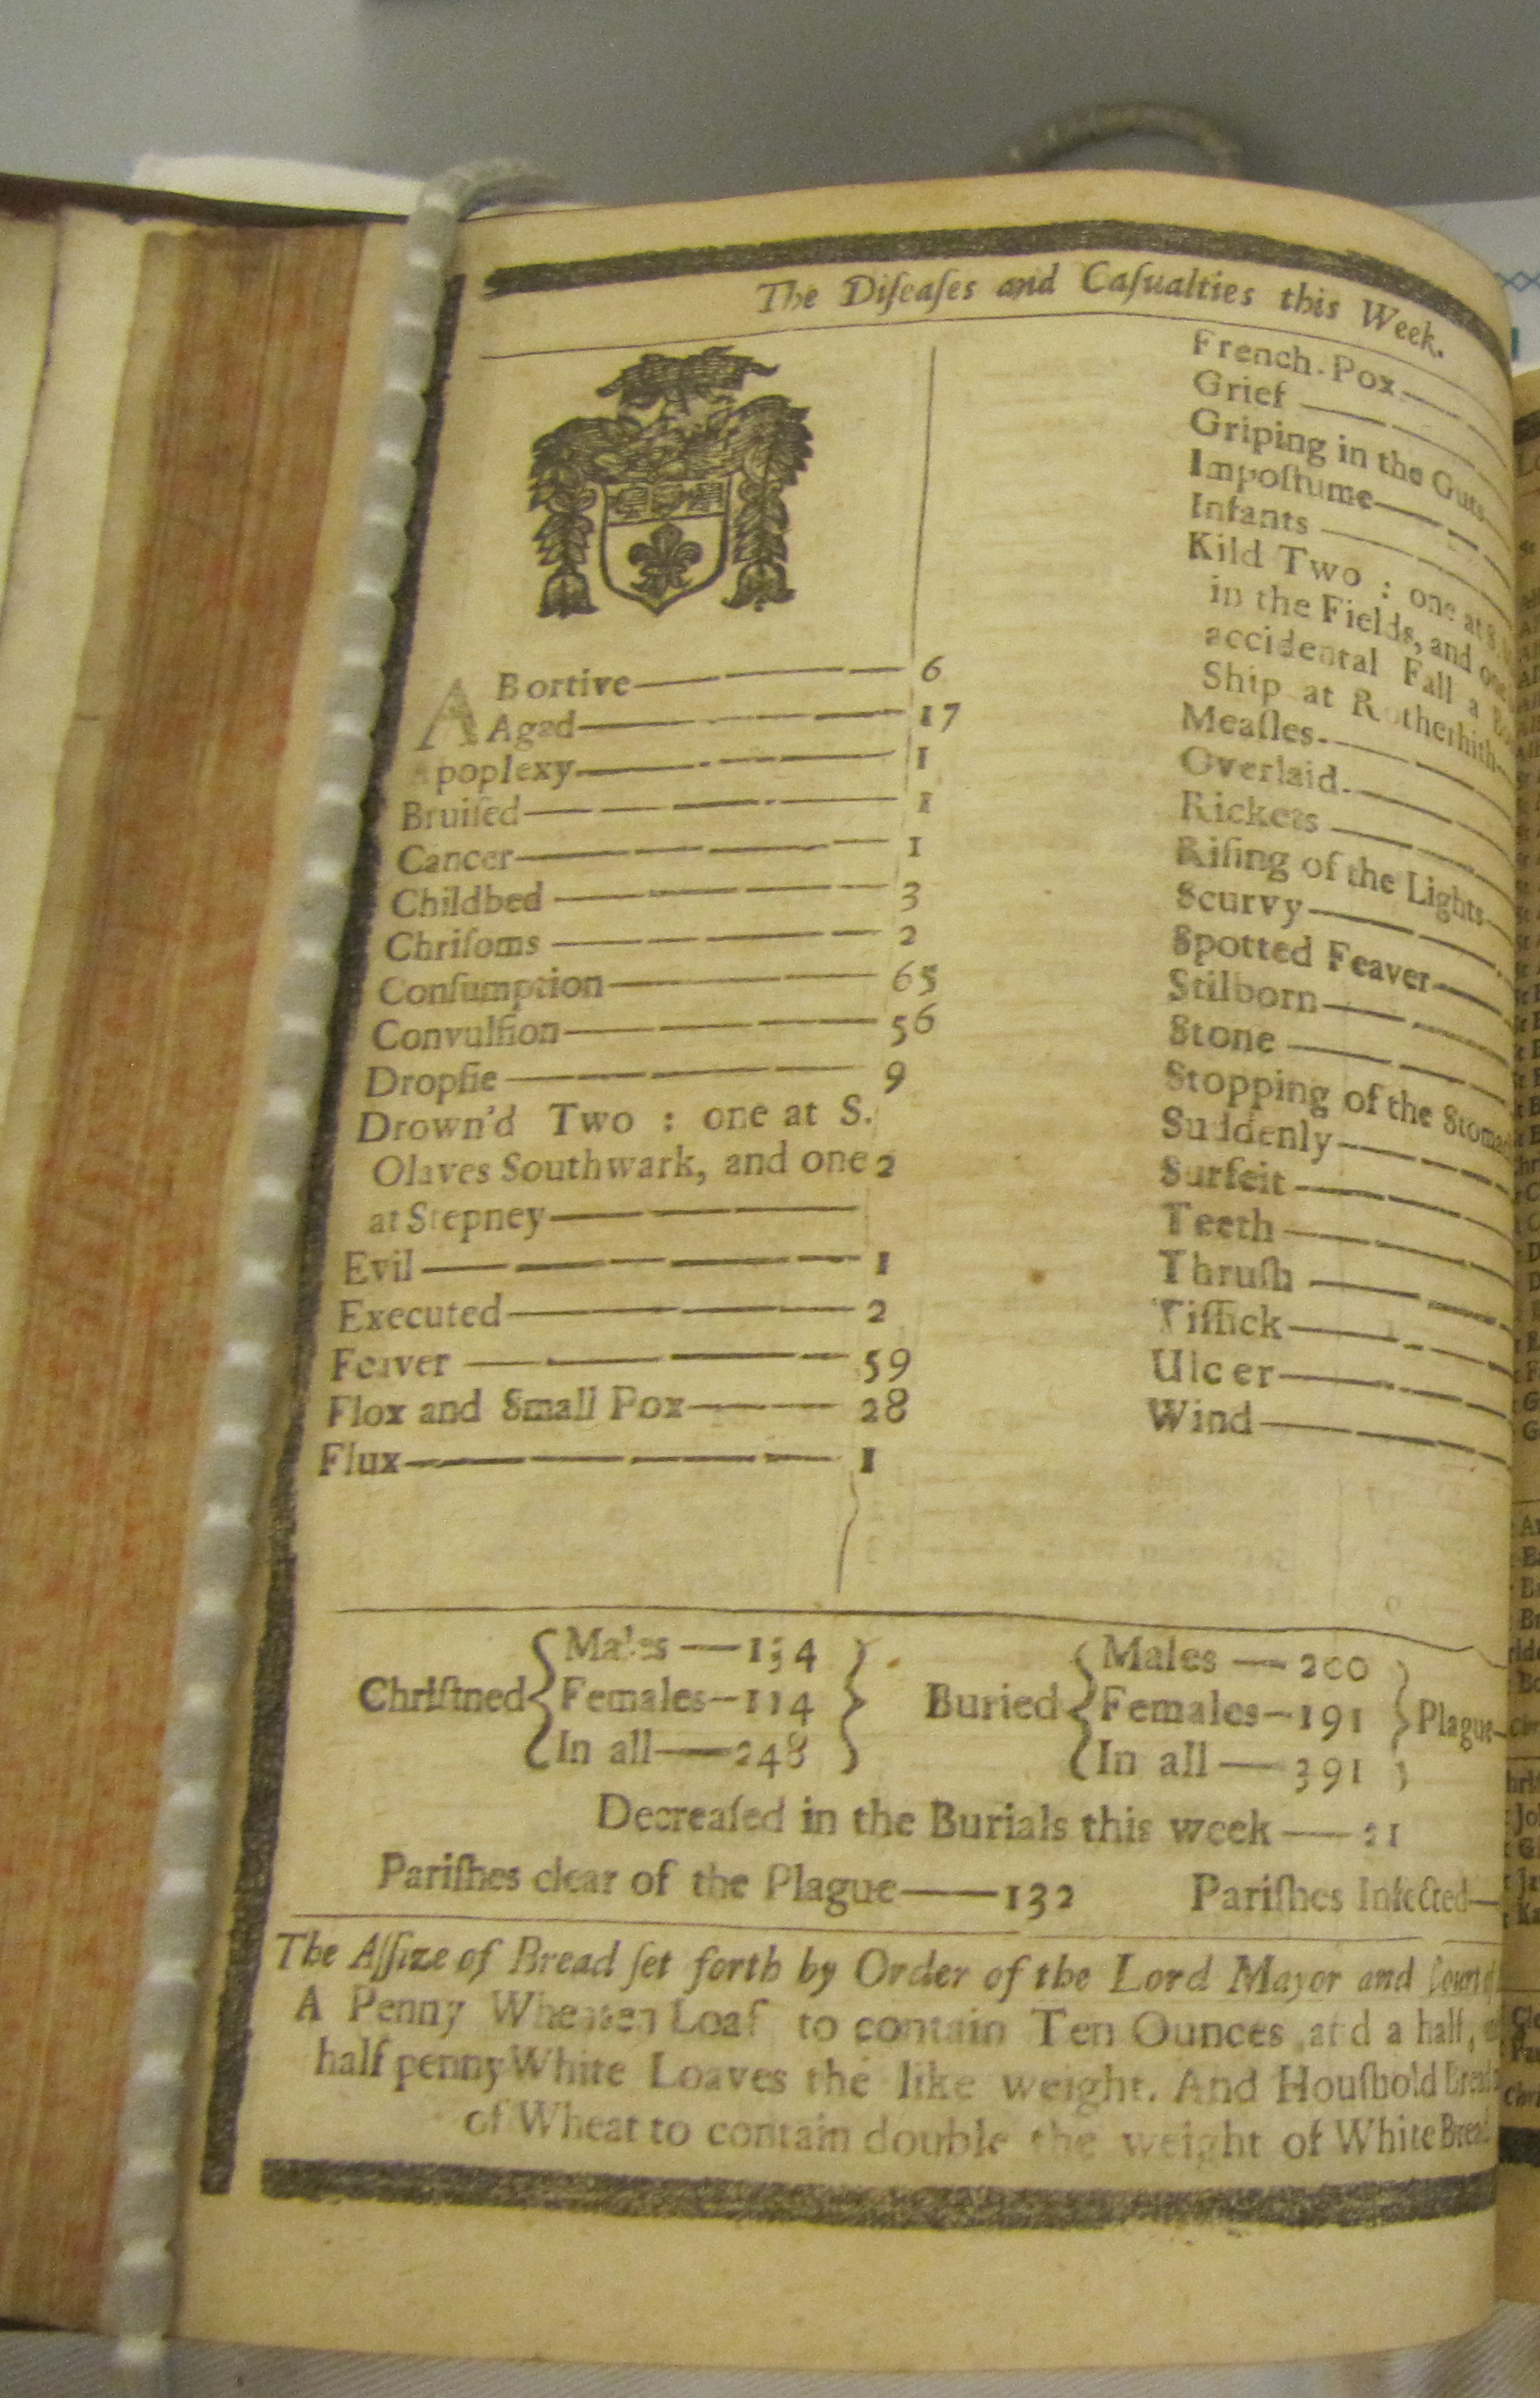 The Diſeaſes and Caſualties this Week.
ABortive 6
Aged 17
Apoplexy 1
Bruiſed 1
Cancer 1
Childbed 3
Chriſoms 2
Conſumption 65
Convulſion 56
Dropſie 9
Drown'd Two : one at S.
Olaves Southwark, and one 2
at Stepney
Evil 1
Executed 2
Feaver 59
Flox and Small Pox 28
Flux 1
French-Pox
Grief
Griping in the Guts
Impoſtume
Infants
Kild Two : one at
in the Fields, and one
accidental Fall a
Ship at Rotherhith
Meaſles
Overlaid
Rickets
Riſing of the Lights
Scurvy
Spotted Feaver
Stilborn
Stone
Stopping of the
Suddenly
Surfeit
Teeth
Thruſh
Tiſſick
Ulcer
Wind
Chriſtned
Males — 134
Females — 114
In all — 248
Buried
Males — 200
Females — 191
In all — 391
Plague
Decreaſed in the Burials this week
Pariſhes clear of the Plague — 132 Pariſhes Infected
The Aſſize of Bread ſet forth by Order of the Lord Mayor and Court
A Penny Wheaten Loaf to contain Ten Ounces and a half,
half penny White Loaves the like weight. And Houſhold Bread
of Wheat to contain double the weight of White Bread